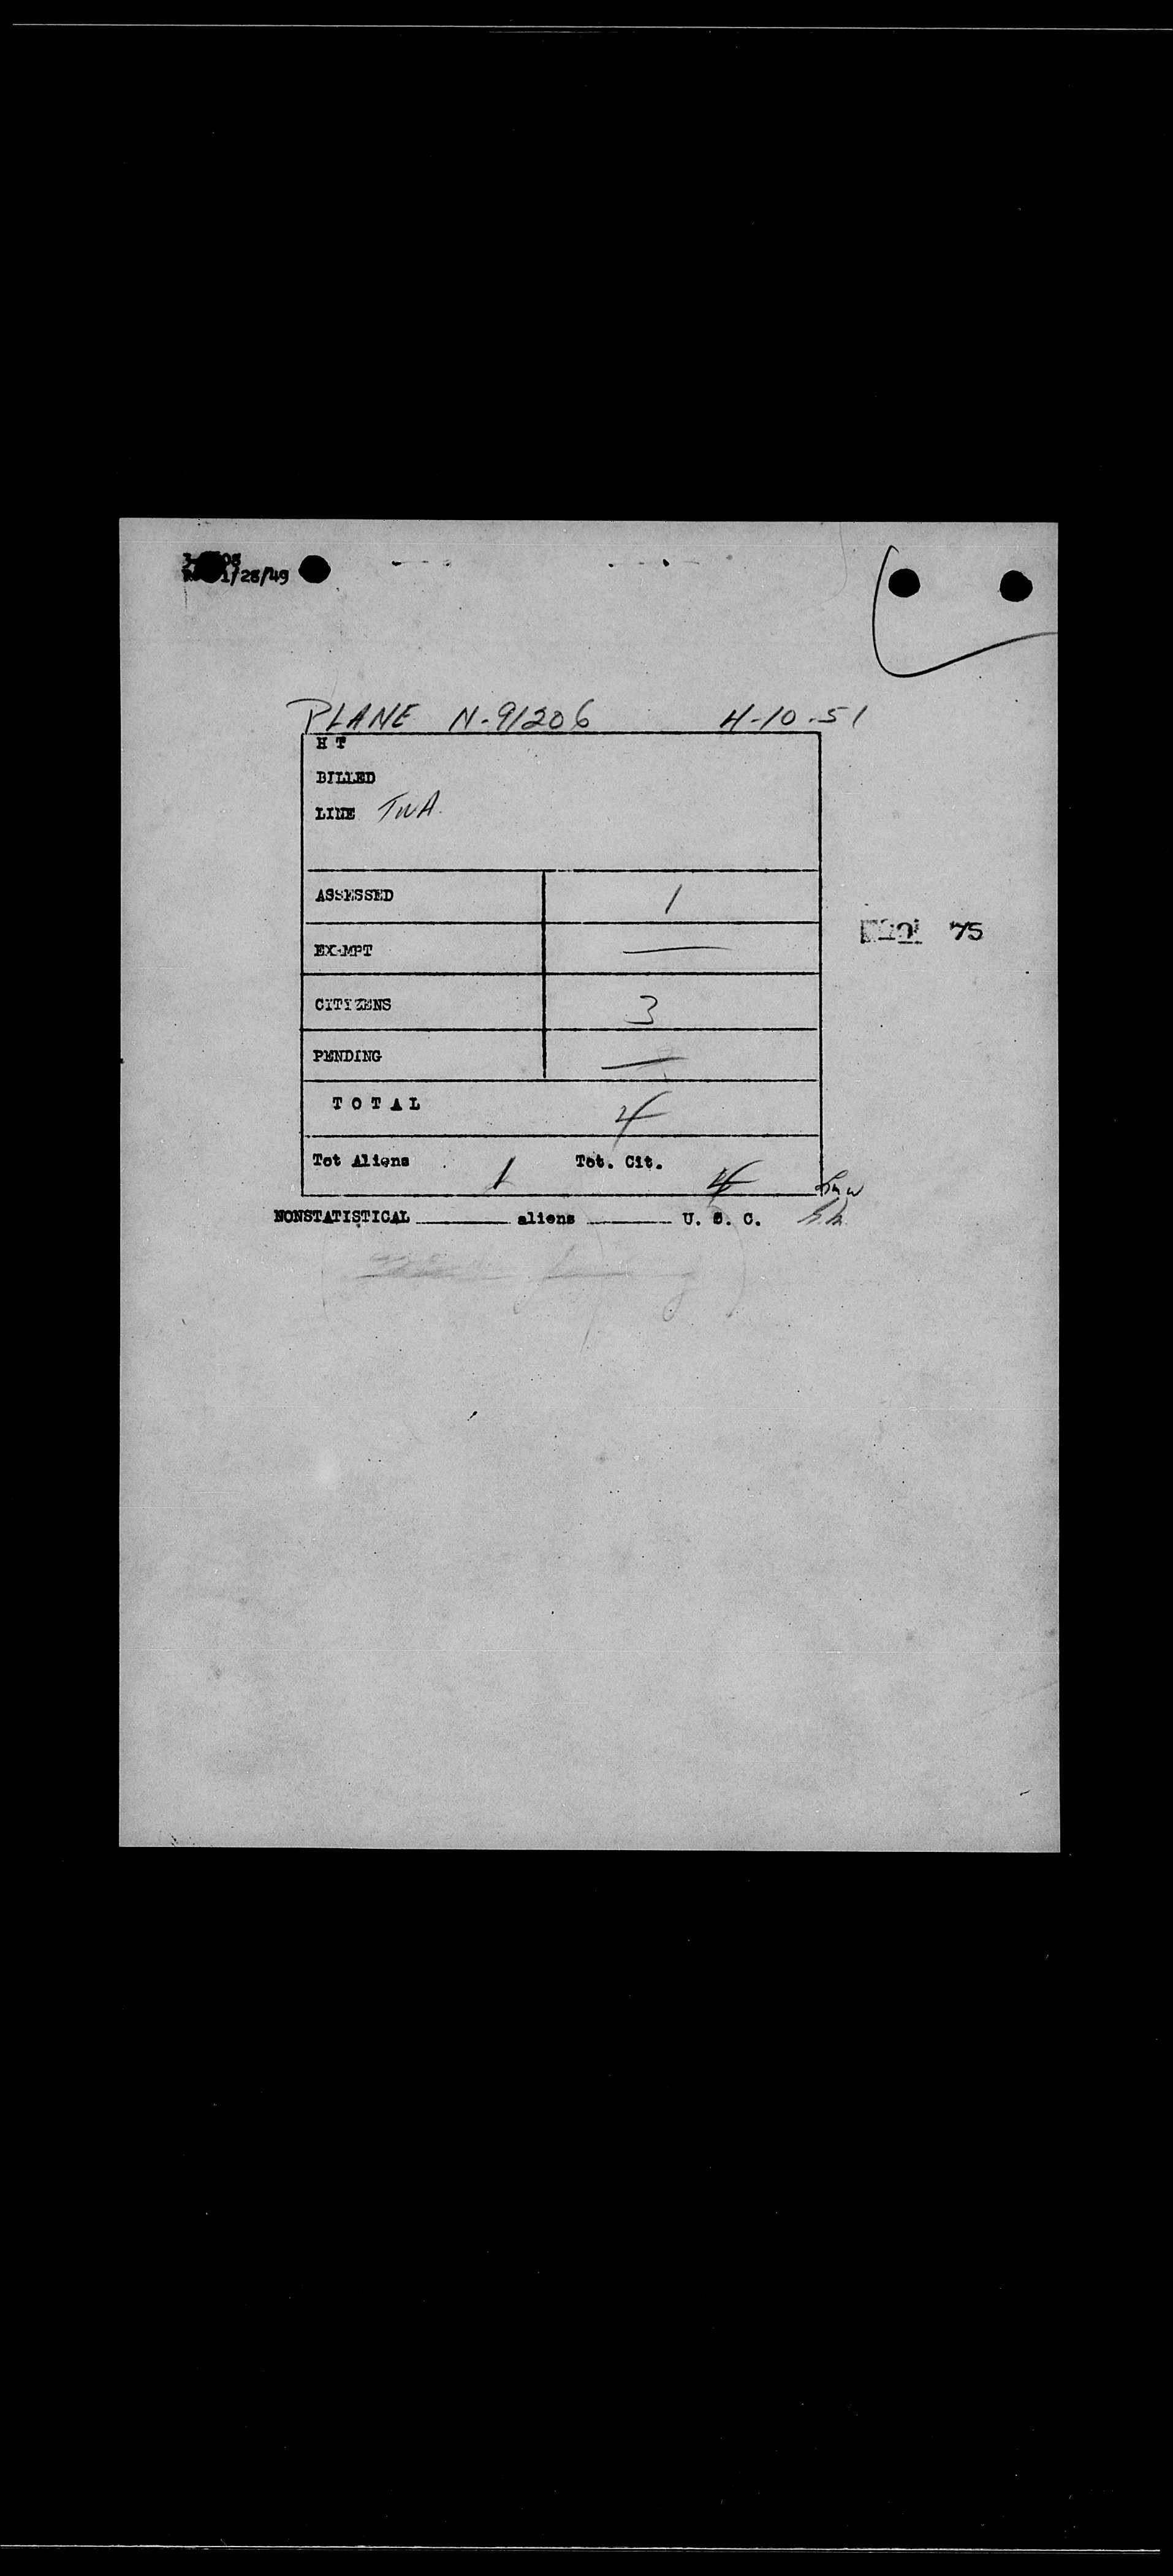 1/28/49
PLANE N-91206 4-10-51
H T
BILLED
LINE TWA
ASSESSED 1
EXEMPT —
75
CITIZENS 3
PENDING —
T O T A L 4
Tot Aliens 1 Tot. Cit. 4
NONSTATISTICAL ______ aliens ______ U. S. C.